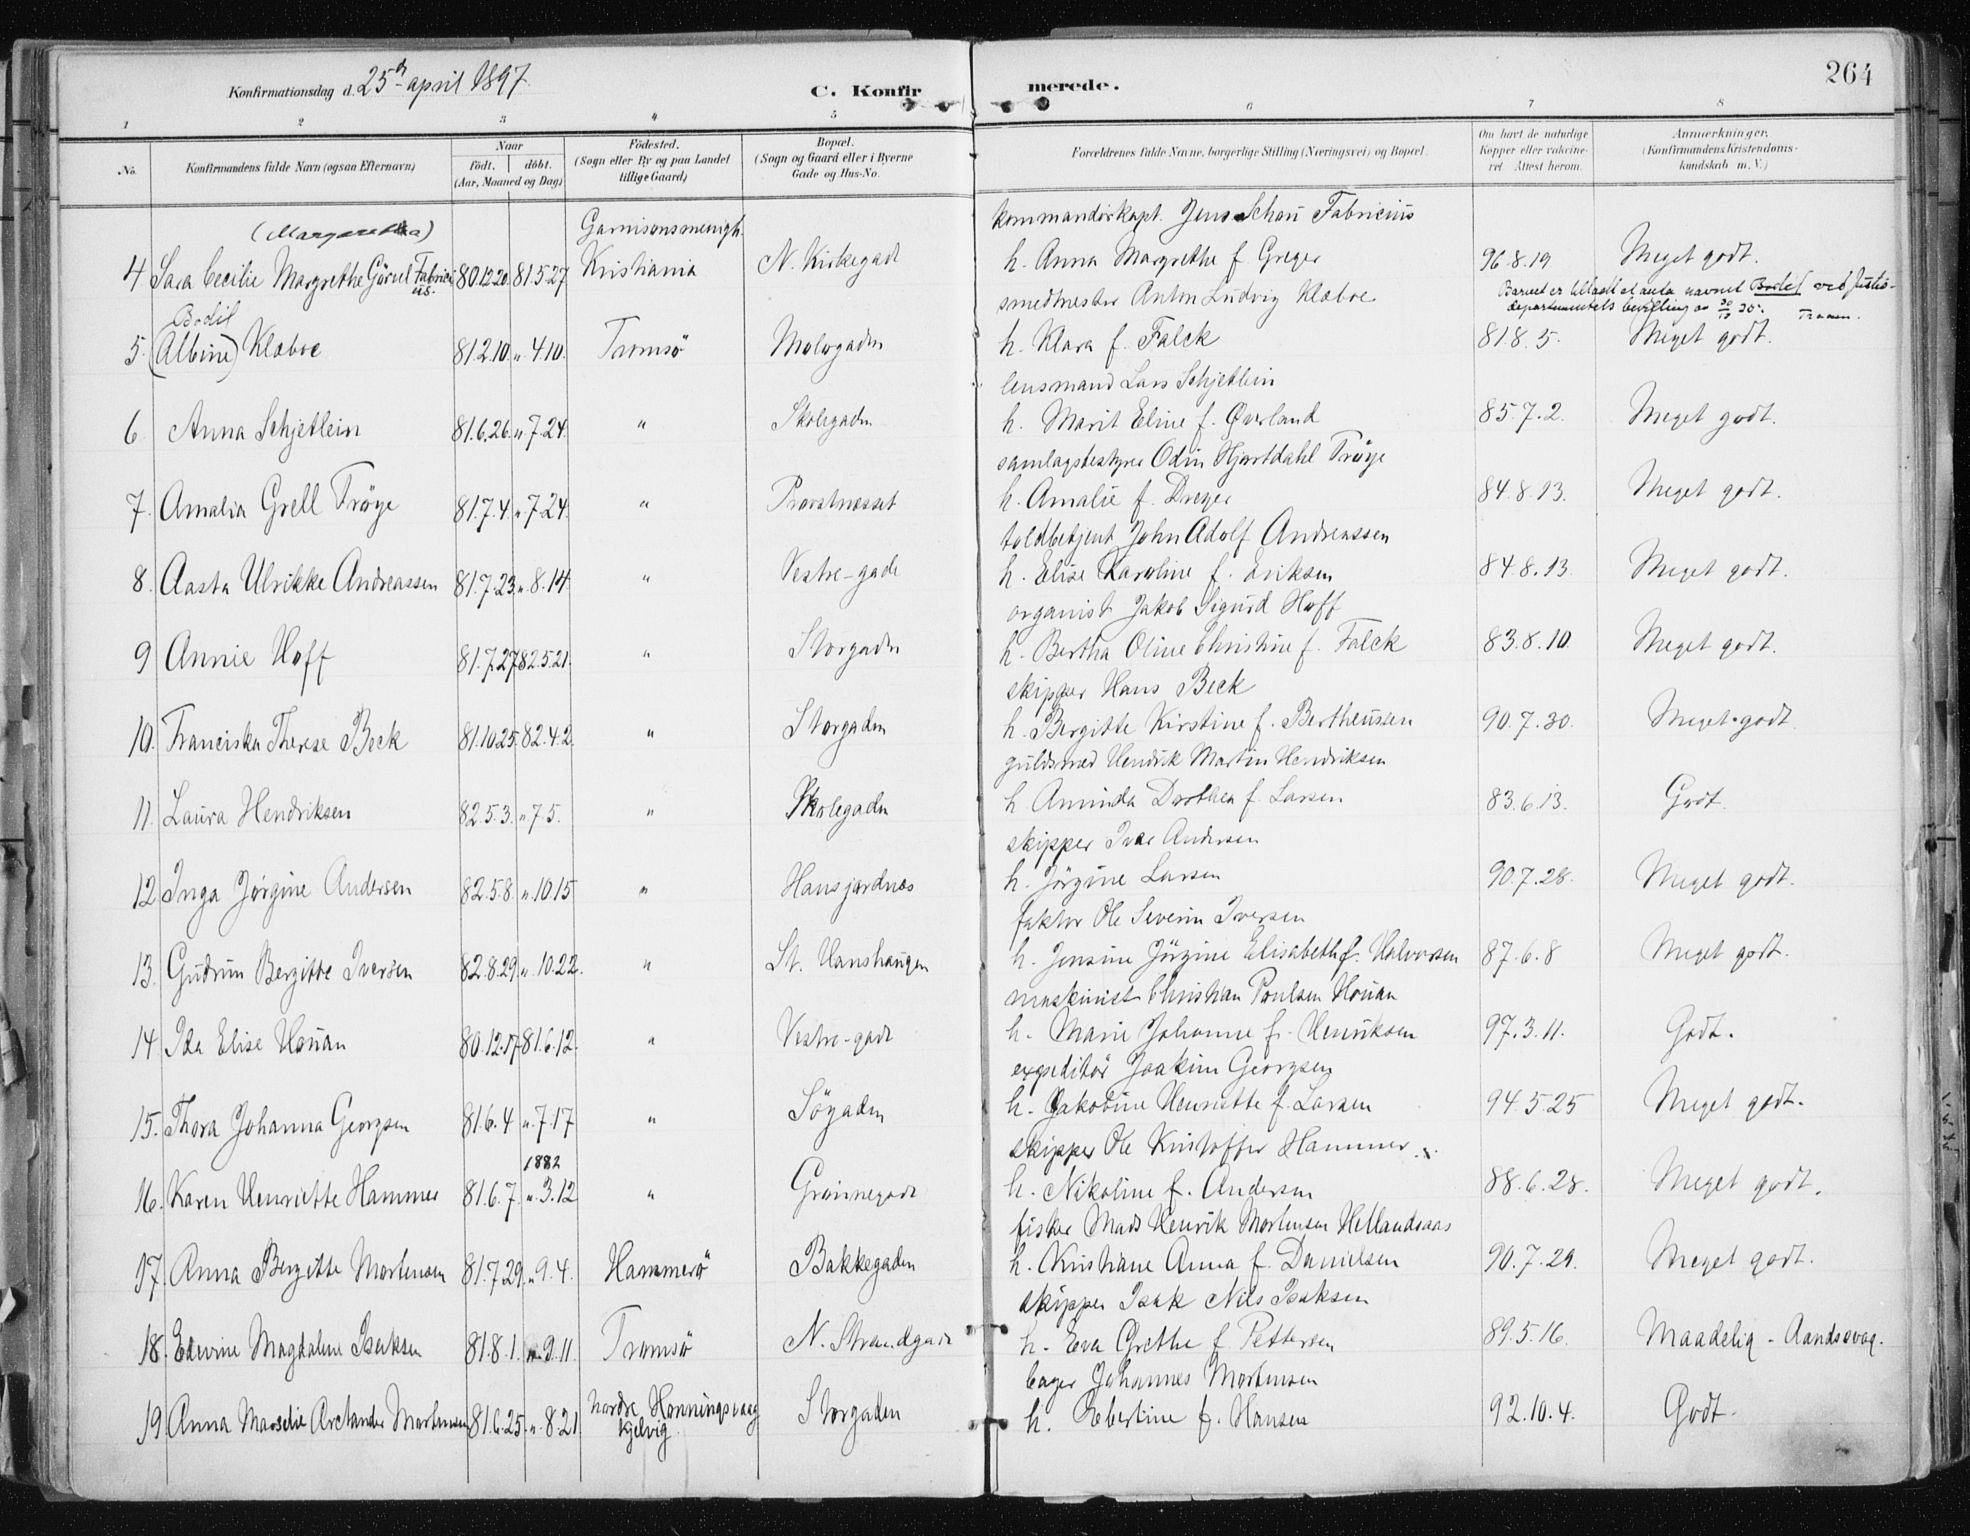 Konfirmationsdag d. 25de april 1897.
C. Konfirmerede.
264
1 2 3 4 5 6 7 8
No.
Konfirmandens fulde Navn (ogsaa Efternavn)
Naar
født. døbt.
(Aar, Maaned og Dag)
Fødested.
(Sogn eller By og paa Landet tillige Gaard)
Bopæl.
(Sogn og Gaard eller i Byerne Gade og Hus-No.
Forældrenes fulde Navne, borgerlige Stilling (Næringsvei) og Bopæl.
Om havt de naturlige Kopper eller vakcineret Attest herom.
Anmærkninger.
(Konfirmandens Kristendomskundskab m. V.)
(Margaretha) Garnisonsmenigh. kommandörkapt. Jens Schou Fabricius
4 Sara Cecilie Margrethe Gürvel Fabricius. 80.12.20. 81.5.27 Kristiania N. Kirkegade h. Anna Margrethe f. Greger 96.8.19 Meget godt.
smedmester Anton Ludvig Klæboe
Barnet er tilladt at anta navnet Bodil ved Justisdepartementets bevilling av 30/10 30.
Bodil
5. (Albine) Klæboe 81.2.10. „ 4.10. Tromsö Mologaden h. Klara f. Falck 81.8.5. Meget godt.
lensmand Lars Schjetlein
6. Anna Schjetlein 81.6.26. „ 7.24. " Skolegaden h. Marit Eline f. Øverland 85.7.2. Meget godt.
samlagsbestyrer Odin Hjortdahl Fröye
7. Amalia Grell Fröye 81.7.4. „ 7.24. " Provstnesset h. Amalie f. Dreyer 84.8.13. Meget godt.
toldbetjent John Adolf Andreassen
8. Aasta Ulrikke Andreassen 81.7.23. „ 8.14. " Vestre-gade h. Elise Karoline f. Eriksen 84.8.13. Meget godt.
organist Jakob Sigurd Hoff
9 Annie Hoff 81.7.27 82.5.21. " Storgaden h. Bertha Oline Christine f. Falck 83.8.10. Meget godt.
skipper Hans Beck
10. Franciska Therese Beck 81.10.25. 82.4.2. " Storgaden h. Bergitte Kirstine f. Bertheussen 90.7.30. Meget godt.
guldsmed Hendrik Martin Hendriksen
11. Laura Hendriksen 82.5.3. „ 7.5. " Skolegaden h. Aminda Dorthea f. Larsen 83.6.13. Godt.
skipper Ivar Andersen
12. Inga Jørgine Andersen 82.5.8. „ 10.15 " Hansjordnæs h. Jörgine Larsen 90.7.28. Meget godt.
faktor Ole Severin Iversen
13. Gudrun Bergitte Iversen 82.8.29. „ 10.22. " St. Hanshaugen h. Jensine Jörgine Elisabeth f. Halvorsen 87.6.8 Meget godt.
maskinist Christian Poulsen Houan
14. Ida Elise Houan 80.12.17 81.6.12. " Vestre-gade h. Marie Johanne f. Henriksen 97.3.11. Godt.
expeditör Joakim Georgsen
15. Thora Johanna Georgsen 81.6.4 „ 7.17 " Sögaden h. Jakobine Henriette f. Larsen 94.5.25 Meget godt.
1882 skipper Ole Kristoffer Hammer
16. Karen Henriette Hammer 81.6.7. „ 3.12 " Grönnegade h. Nikoline f. Andersen 88.6.28. Meget godt.
fisker Mads Henrik Mortensen Hellandsaas
17. Anna Bergitte Mortensen 81.7.29. „ 9.4. Hammerö Bakkegaden h. Kristiane Anna f. Danielsen 90.7.29. Meget godt.
skipper Isak Nils Isaksen
18. Edevine Magdalene Isaksen 81.8.1. „ 9.11. Tromsö N. Strandgade h. Eva Grethe f. Pettersen 89.5.16. Maadelig - Aandssvag.
bager Johannes Mortensen
19. Anna Marselie Arctander Mortensen 81.6.25. „ 8.21 nordre Honningsvaag Kjelvig. Storgaden h. Ebertine f. Hansen 92.10.4. Godt.